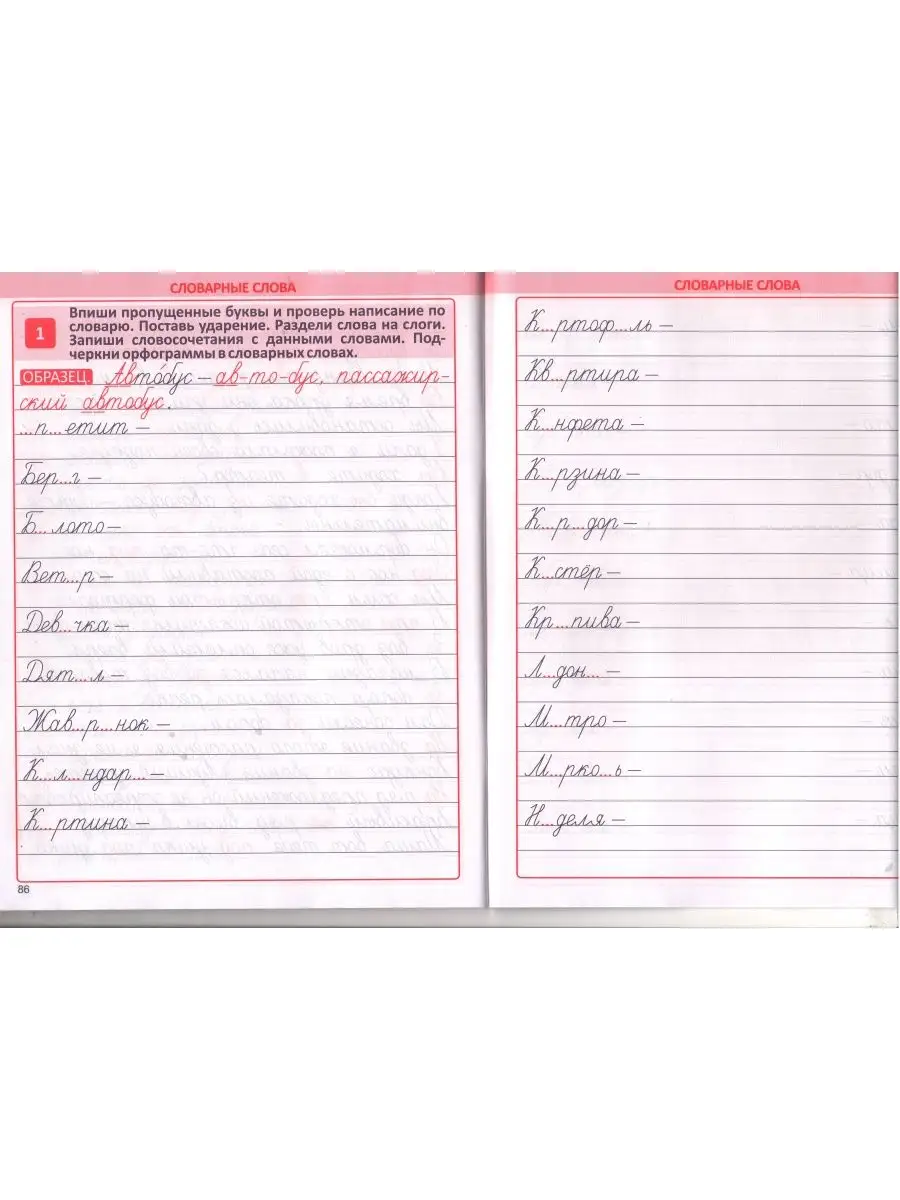 СЛОВАРНЫЕ СЛОВА
1
Впиши пропущенные буквы и проверь написание по
словарю. Поставь ударение. Раздели слова на слоги.
Запиши словосочетания с данными словами. Под-
черкни орфограммы в словарных словах.
ОБРАЗЕЦ. Авто́бус – ав-то-бус, пассажир-
ский автобус.
...п...етит –
Бер...г –
Б...лото –
Вет...р –
Дев...чка –
Дят...л –
Жав...р...нок –
К...л...ндар... –
К...ртина –
86
СЛОВАРНЫЕ СЛОВА
К...ртоф...ль –
Кв...ртира –
К...нфета –
К...рзина –
К...р...дор –
К...стёр –
Кр...пива –
Л...дон... –
М...тро –
М...рко...ь –
Н...деля –